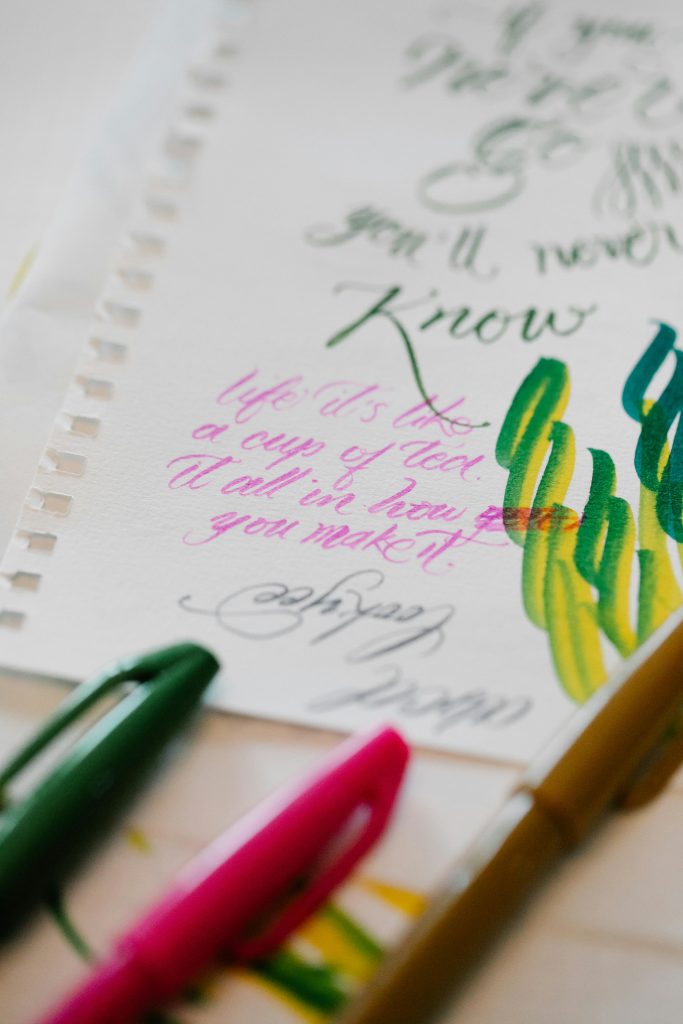 If you
Never
Go
you'll never
Know
life it's like
a cup of tea.
it all in how
you make it.